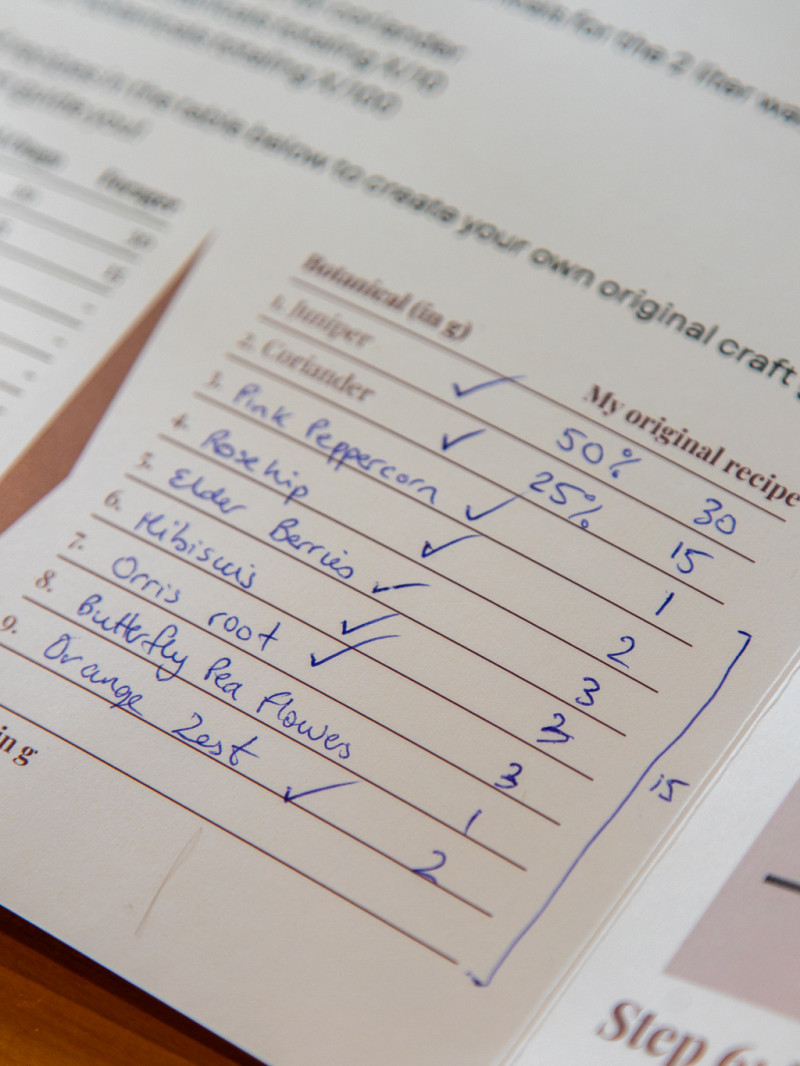 for the 2 liter
coriander
totaling X/10
totaling X/100
in the table below to create your own original craft
Botanical (in g) My original recipe
1. Juniper ✓ 50% 30
2. Coriander ✓ 25% 15
3. Pink Peppercorn ✓ 1
4. Rosehip ✓ 2
5. Elder Berries ✓ 3
6. Hibiscus ✓
7. Orris root ✓ 3
8. Butterfly Pea flowes 1
9. Orange Zest ✓ 2
15
in g
Step